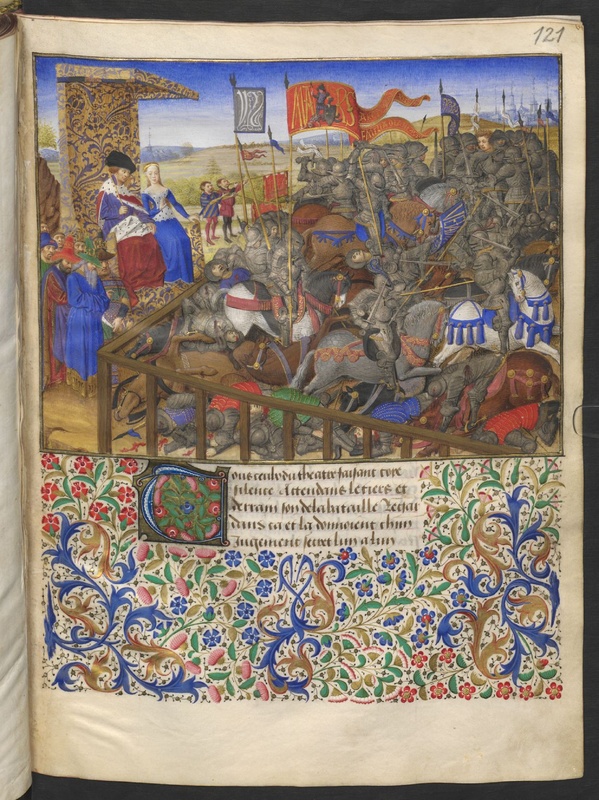 121
Tous ceulx du theatre faisant coye
silence Attendans le tiers et
derrain son de la bataille Regar
dans ca et la donnoient chun
Jugement secret lun a lun